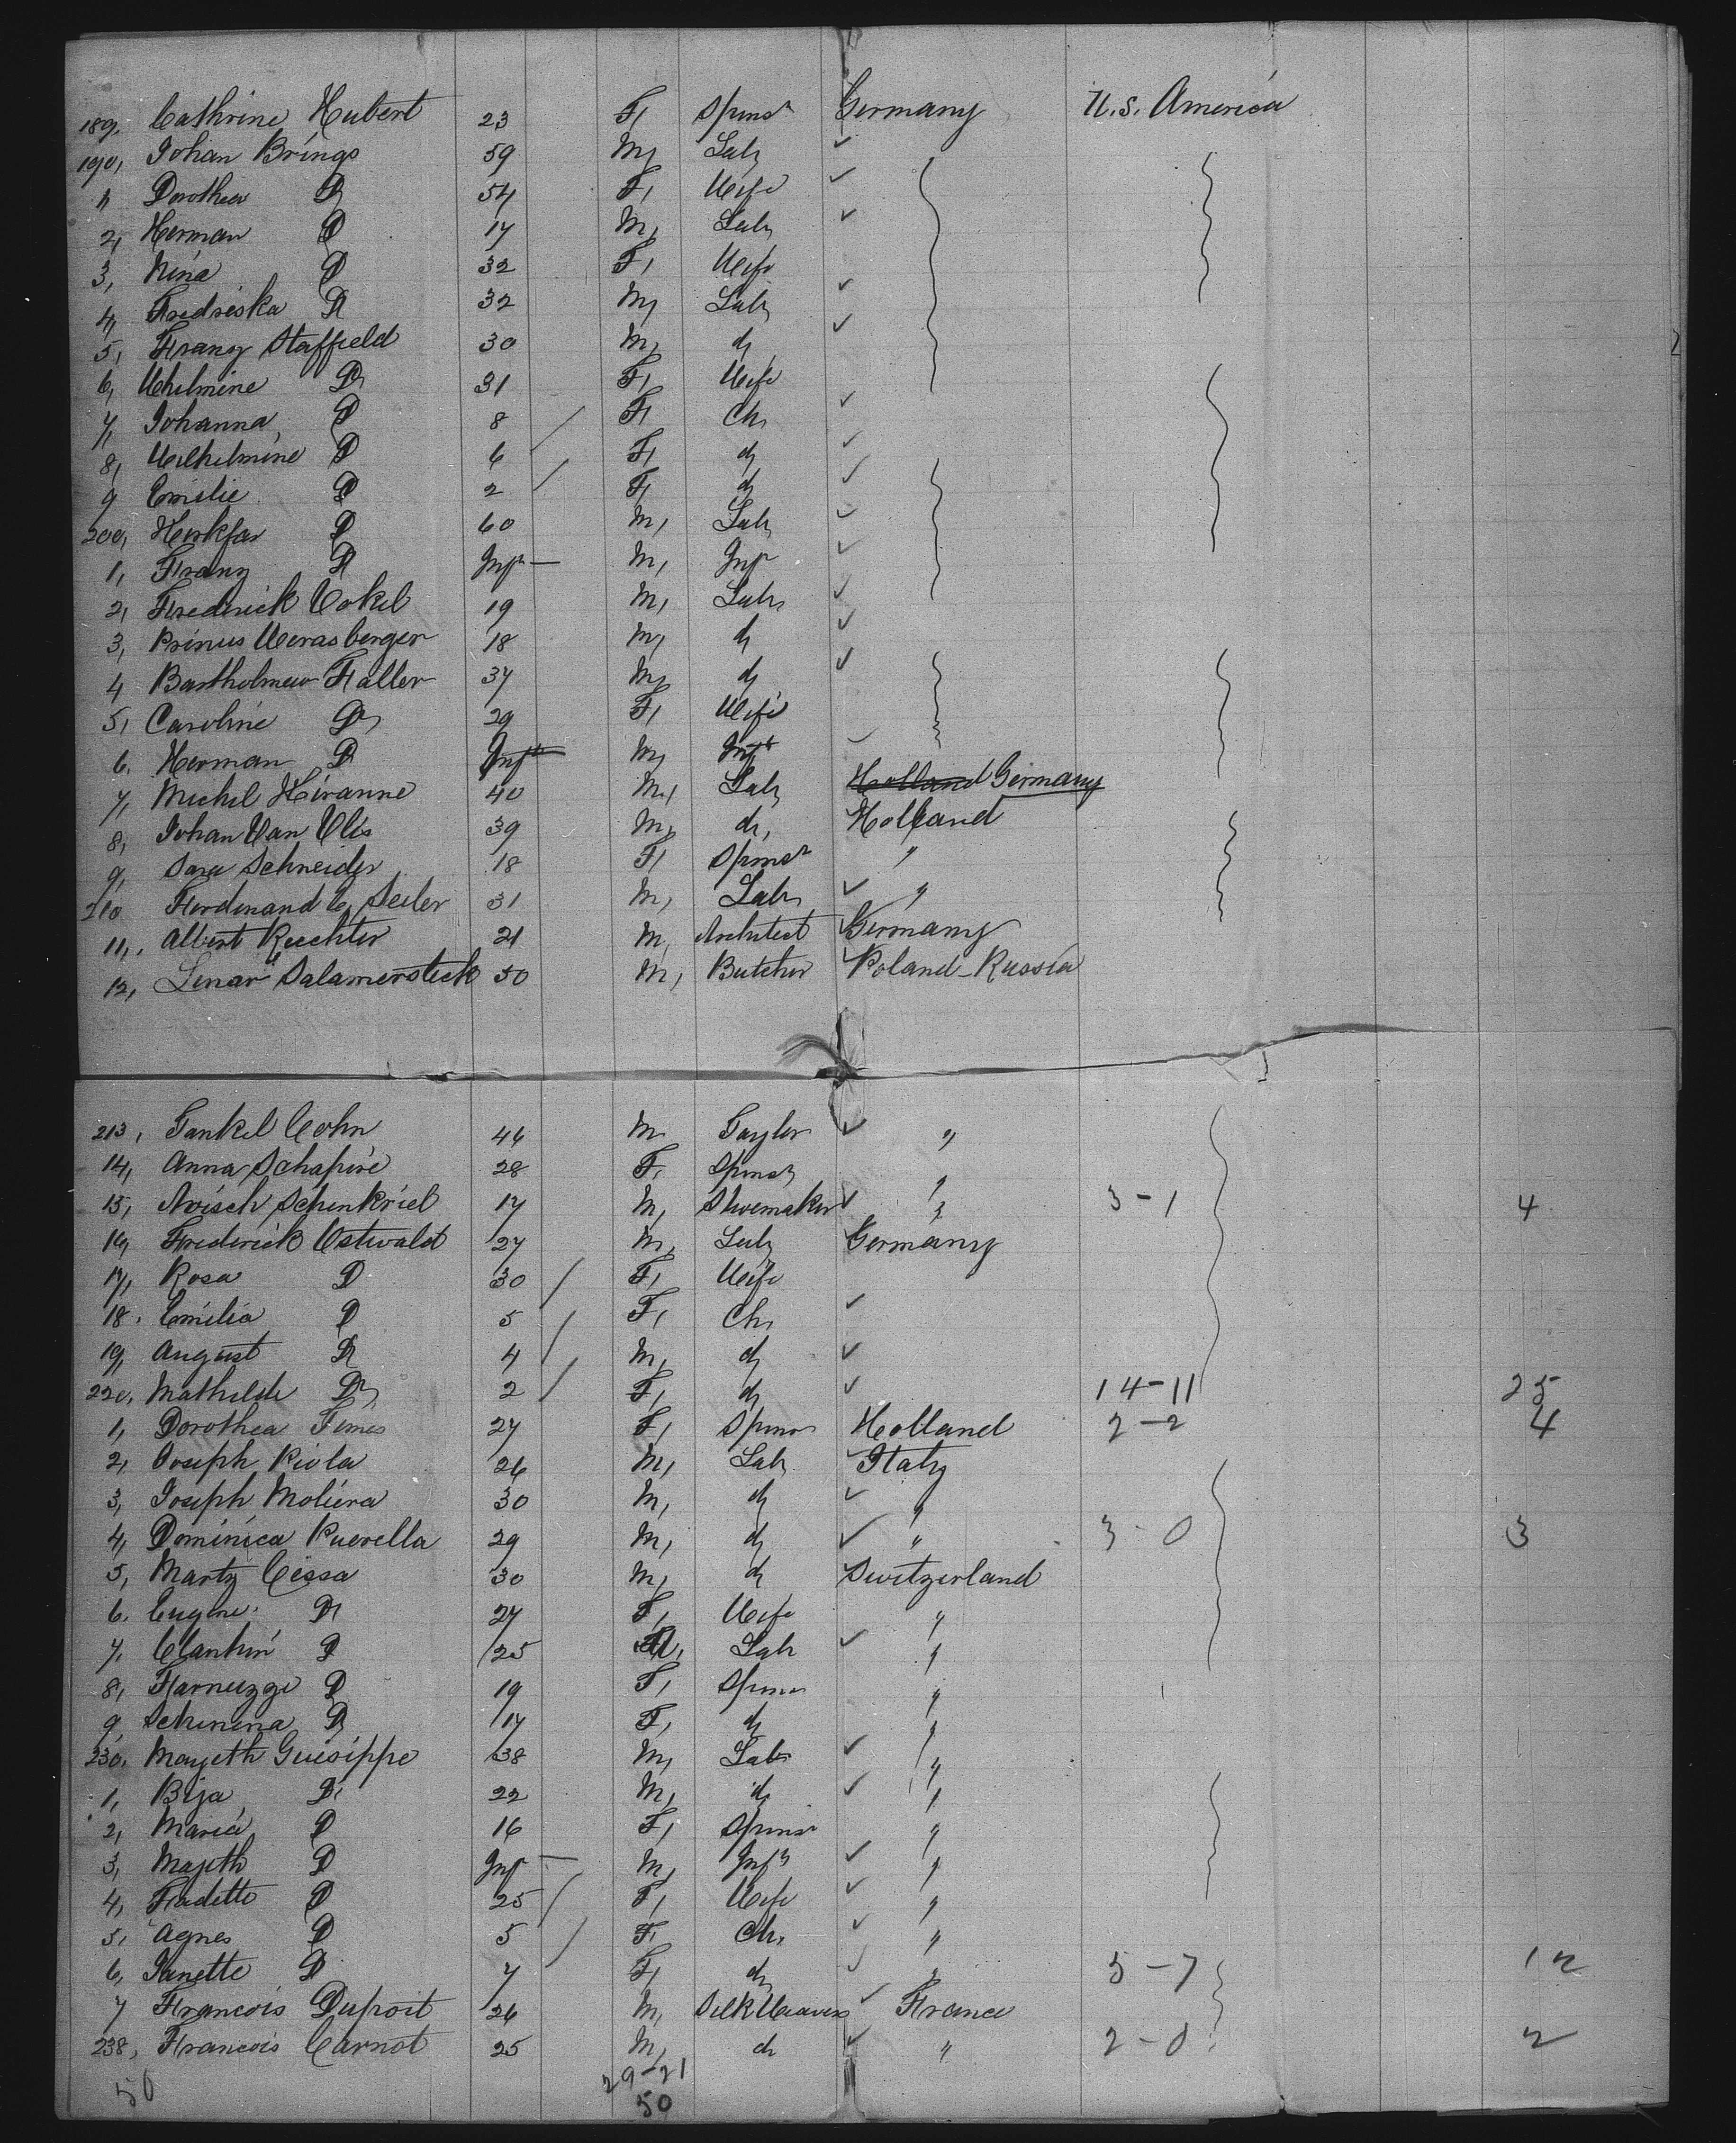 189, Cathrine Hubert 23 F, Spinsr Germany U.S. America
190, Johan Brings 59 M, Labr ✓
1, Dorothea Do 54 F, Wife ✓
2, Herman Do 17 M, Labr ✓
3, Nina Do 32 F, Wife
4, Fredriska Do 32 M, Labr ✓
5, Franz Staffield 30 M, do ✓
6, Whilmine Do 31 F, Wife
7, Johanna Do 8 / F, Ch, ✓
8, Wilhilmine Do 6 F, do ✓
9 Emilie Do 2 / F, do ✓
200, Do 60 M, Labr ✓
1, Franz Do Inft — M, Inft ✓
2, Frederick Cokel 19 M, Labr ✓
3, Prinus Werasberger 18 M, do ✓
4 Bartholmew Faller 37 M, do ✓
5, Caroline Do 29 F, Wife
6. Herman Do Inft M, Inft ✓
7, Michil Hiranne 40 M, Labr Holland Germany
8, Johan Van Vlis 39 M, do, Holland
9, Sara Schneider 18 F, Spinsr "
210 Ferdinand C, Seiler 31 M, Labr ✓ "
11, Albert Ruchter 21 M, Architect Germany
12, Linar Salamersteck 50 M, Butcher Poland - Russia
213, Jankel Cohn 46 M Taylor ✓ "
14, Anna Schapire 28 F, Spinsr "
15, Schenkriel 17 M, Shoemaker ✓ " 3 - 1 4
16, Frederick Ostwalt 27 M, Labr Germany
17, Rosa Do 30 / F, Wife
18. Emilia Do 5 / F, Ch, ✓
19, August Do 4 / M, do ✓
220, Mathilde Do 2 / F, do ✓ 14 - 11 25
1, Dorothea 27 F, Spinsr Holland 2 - 2 4
2, Joseph Riola 26 M, Labr Italy
3, Joseph Moliera 30 M, do ✓ "
4, Dominica Puerella 29 M, do ✓ " 3 - 0 3
5, Martz Cissa 30 M, do Switzerland
6. Eugine Do 27 F, Wife "
7, Do 25 M, Labr ✓ "
8, Farnuzze Do 19 F, Spinsr "
9, Schinina Do 17 F, do "
230, Mayeth Guisippe 38 M, Labr ✓ "
1, Bija Do 22 M, do ✓ "
2, Maria Do 16 F, Spinsr "
3, Majeth Do Inft — M, Inft ✓ "
4, Fradette Do 25 / F, Wife ✓ "
5, Agnes Do 5 / F, Ch, ✓ "
6, Janette Do 7 F, do ✓ " 5 - 7 12
7 Francois Dupoit 26 M, Silk Weaver ✓ France
238, Francois Carnot 25 M, do ✓ " 2 - 0 2
50 29-21
50